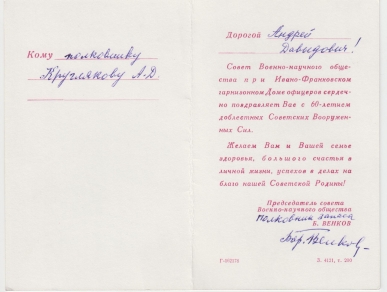 Кому полковнику
Круглякову А-Д
Дорогой Андрей
Давыдович!
Совет Военно-научного обще-
ства при Ивано-Франковском
гарнизонном Доме офицеров сердеч-
но поздравляет Вас с 60-летием
доблестных Советских Вооружен-
ных Сил.
Желаем Вам и Вашей семье
здоровья, большого счастья в
личной жизни, успехов в делах на
благо нашей Советской Родины!
Председатель совета
Военно-научного общества
полковник запаса
Б. ВЕНКОВ
Бор. Венков
З. 4121, т. 200